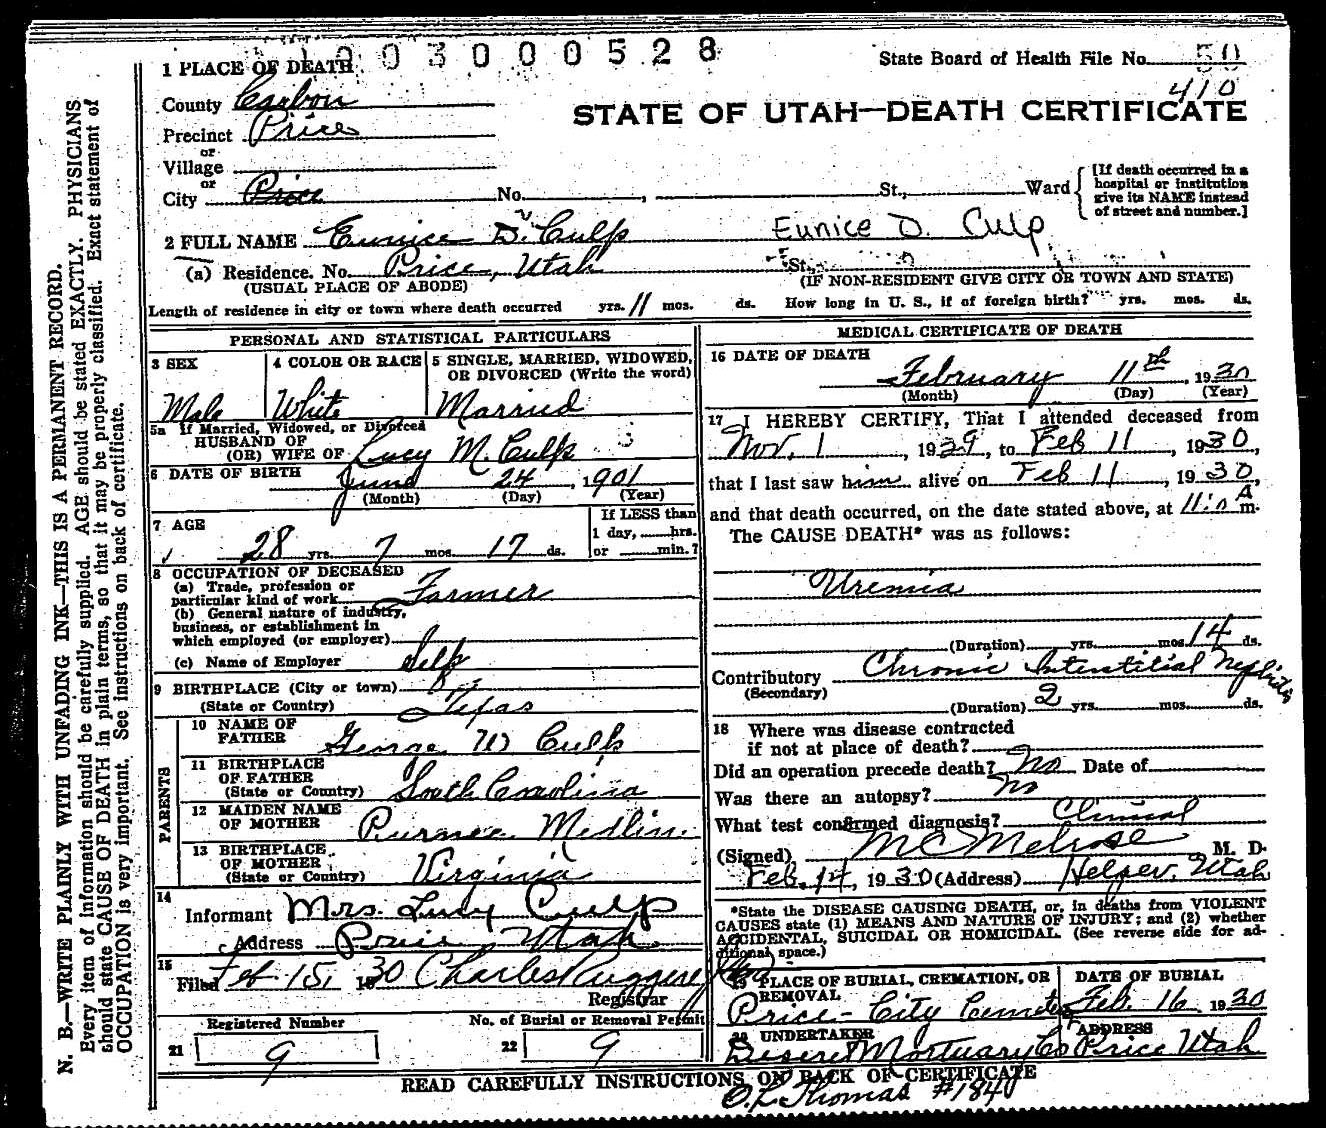 1003000528
State Board of Health File No. 50
410
STATE OF UTAH—DEATH CERTIFICATE
1 PLACE OF DEATH
County Carbon
Precinct Price
or
Village
or
City Price No. , St., Ward
[If death occurred in a
hospital or institution
give its NAME instead
of street and number.]
2 FULL NAME Eunice D. Culp Eunice D. Culp
(a) Residence. No. Price, Utah St.,
(USUAL PLACE OF ABODE) (IF NON-RESIDENT GIVE CITY OR TOWN AND STATE)
Length of residence in city or town where death occurred yrs. 11 mos. ds. How long in U. S., if of foreign birth? yrs. mos. ds.
PERSONAL AND STATISTICAL PARTICULARS
3 SEX
Male
4 COLOR OR RACE
White
5 SINGLE, MARRIED, WIDOWED,
OR DIVORCED (Write the word)
Married
5a If Married, Widowed, or Divorced
HUSBAND OF
(OR) WIFE OF Lucy M. Culp
6 DATE OF BIRTH June 24, 1901
(Month) (Day) (Year)
7 AGE
28 yrs. 7 mos. 17 ds.
If LESS than
1 day, hrs.
or min.?
8 OCCUPATION OF DECEASED
(a) Trade, profession or
particular kind of work Farmer
(b) General nature of industry,
business, or establishment in
which employed (or employer)
(c) Name of Employer Self
9 BIRTHPLACE (City or town)
(State or Country) Texas
PARENTS
10 NAME OF
FATHER George W Culp
11 BIRTHPLACE
OF FATHER
(State or Country) South Carolina
12 MAIDEN NAME
OF MOTHER Medlin
13 BIRTHPLACE
OF MOTHER
(State or Country) Virginia
14
Informant Mrs. Lucy Culp
Address Price Utah
15
Filed Feb 15, 1930 Charles Ruggere
Registrar
Registered Number
21 9
No. of Burial or Removal Permit
22 9
MEDICAL CERTIFICATE OF DEATH
16 DATE OF DEATH
February 11th, 1930
(Month) (Day) (Year)
17 I HEREBY CERTIFY, That I attended deceased from
Nov. 1, 1929, to Feb 11, 1930,
that I last saw him alive on Feb 11, 1930,
and that death occurred, on the date stated above, at A m.
The CAUSE DEATH* was as follows:
Uremia
(Duration) yrs. mos. 14 ds.
Contributory Chronic Interstitial Nephritis
(Secondary)
(Duration) 2 yrs. mos. ds.
18 Where was disease contracted
if not at place of death? ?
Did an operation precede death? No Date of
Was there an autopsy? No
What test confirmed diagnosis? Clinical
(Signed) MC Melrose M. D.
Feb. 14, 1930 (Address) Helper, Utah
*State the DISEASE CAUSING DEATH, or, in deaths from VIOLENT
CAUSES state (1) MEANS AND NATURE OF INJURY; and (2) whether
ACCIDENTAL, SUICIDAL OR HOMICIDAL. (See reverse side for ad-
ditional space.)
19 PLACE OF BURIAL, CREMATION, OR
REMOVAL
Price-City Cemetery
DATE OF BURIAL
Feb. 16 1930
20 UNDERTAKER
Deseret Mortuary Co
ADDRESS
Price Utah
READ CAREFULLY INSTRUCTIONS ON BACK OF CERTIFICATE
O.L. Thomas #184
N. B.—WRITE PLAINLY WITH UNFADING INK—THIS IS A PERMANENT RECORD.
Every item of information should be carefully supplied. AGE should be stated EXACTLY. PHYSICIANS
should state CAUSE OF DEATH in plain terms, so that it may be properly classified. Exact statement of
OCCUPATION is very important. See instructions on back of certificate.